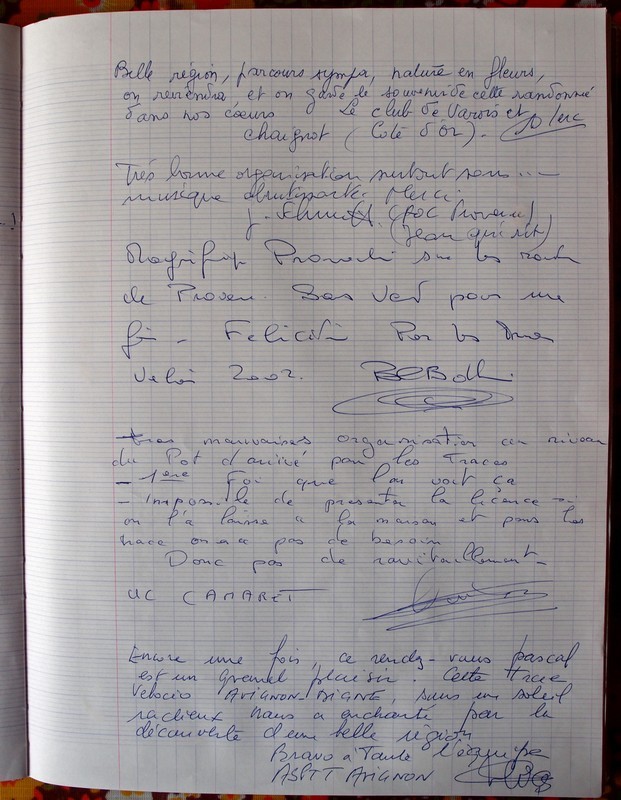 Belle région, parcours sympa, nature en fleurs,
on reviendra, et on garde le souvenir de cette randonné
dans nos cœurs Le club de Varois et
chaignot (Cote d'or).
Très bonne organisation surtout sans...
musique abrutissante. Merci.
(Jean qui rit)
Magnifiq sur les route
de Proven. Sans Vent pour une
foi - Felicit Pour les
Velo 2002.
tres mauvaises organisation au niveau
du Pot d'arrivé pour les Traces
- 1ere Foi que l'on voit ça
- impossible de presenter la licence
on l'a laisse a la maison et pour les
trace on en a pas de besoin
Donc pas de ravitaillement -
UC CAMARET
Encore une fois, ce rendez-vous pascal
est un grand plaisir. Cette trace
Velocio AVIGNON-DIGNE, sous un soleil
radieux nous a enchanté par la
découverte d'une belle région
Bravo à Toute l'équipe
ASPTT AVIGNON